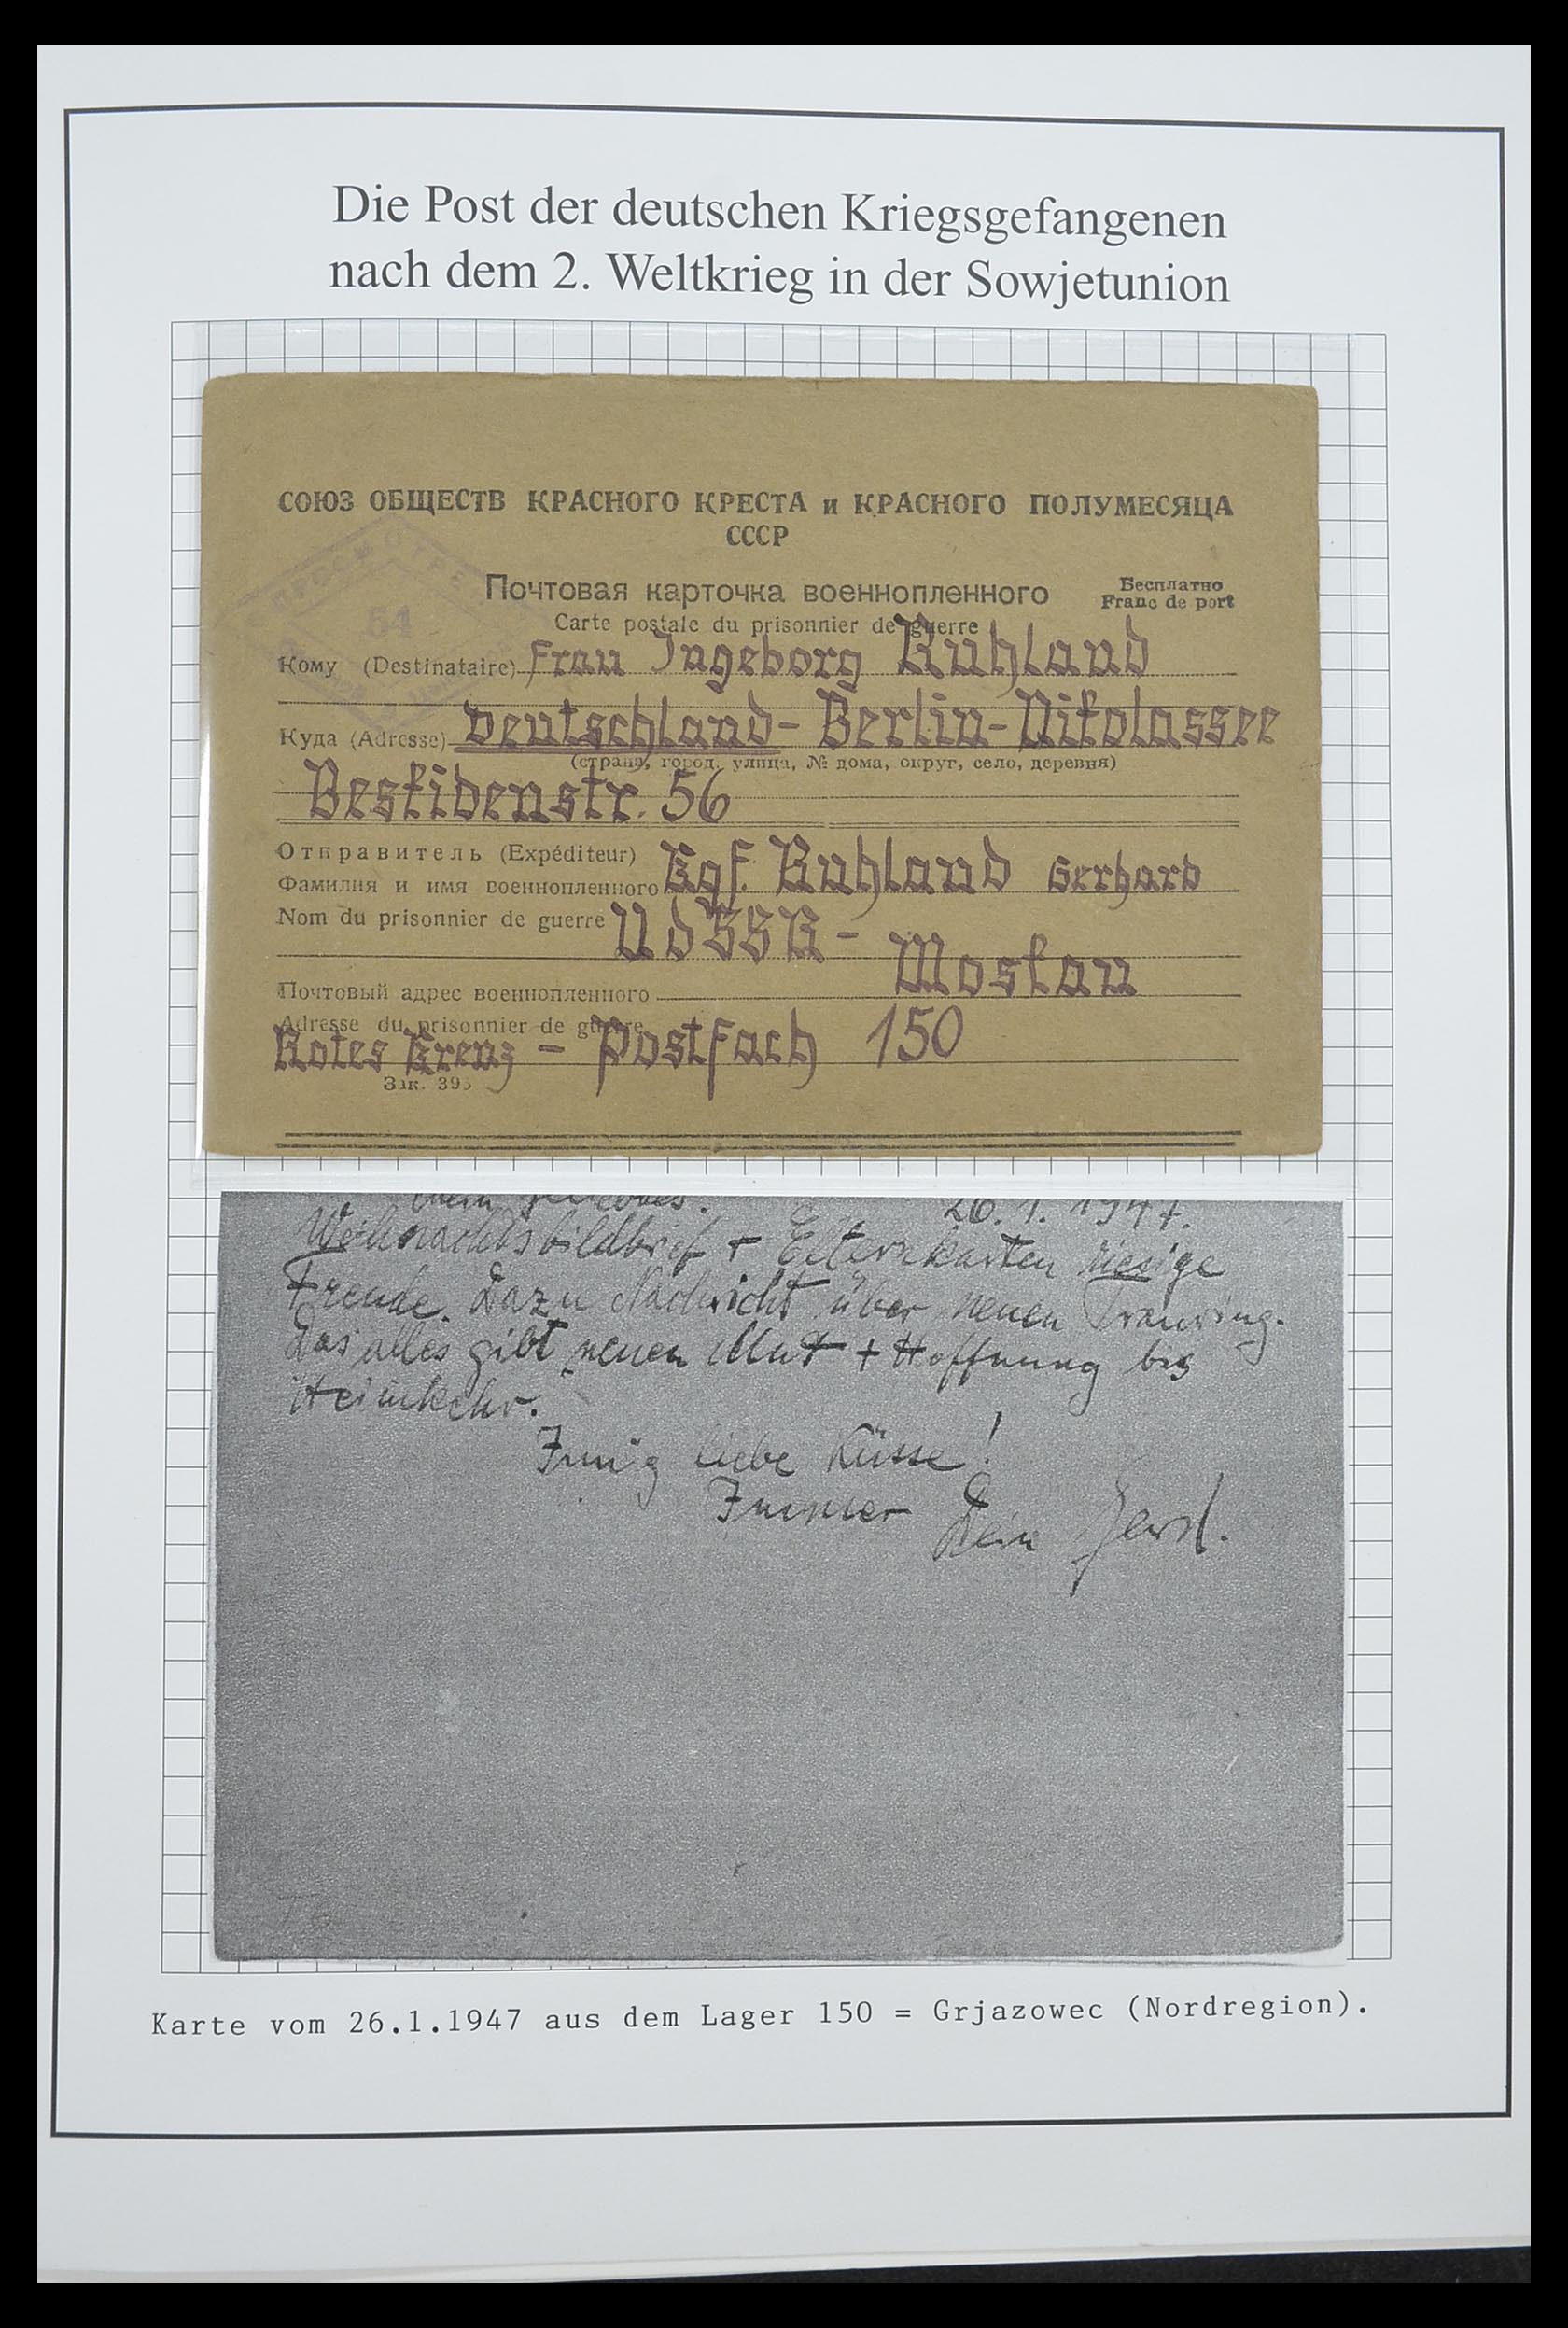 Die Post der deutschen Kriegsgefangenen
nach dem 2. Weltkrieg in der Sowjetunion
СОЮЗ ОБЩЕСТВ КРАСНОГО КРЕСТА и КРАСНОГО ПОЛУМЕСЯЦА
СССР
ПРОСМОТРЕ
64
Почтовая карточка военнопленного
Бесплатно
Franc de port
Carte postale du prisonnier de guerre
Кому (Destinataire) Frau Ingeborg Ruhland
Куда (Adresse) Deutschland - Berlin - Nikolassee
(страна, город, улица, № дома, округ, село, деревня)
Beskidenstr. 56
Отправитель (Expéditeur)
Фамилия и имя военнопленного Kgf. Ruhland Gerhard
Nom du prisonnier de guerre UdSSR -
Moskau
Почтовый адрес военнопленного
Adresse du prisonnier de guerre
Rotes Kreuz - Postfach 150
Зак. 395
26. 1. 1947.
Weihnachtsbildbrief + Elternkarten riesige
Freude. Dazu Nachricht über neuen Trauring.
Das alles gibt neuen Mut + Hoffnung bis
Heimkehr.
Innig liebe Küsse!
Immer Dein Gerd.
Karte vom 26.1.1947 aus dem Lager 150 = Grjazowec (Nordregion).